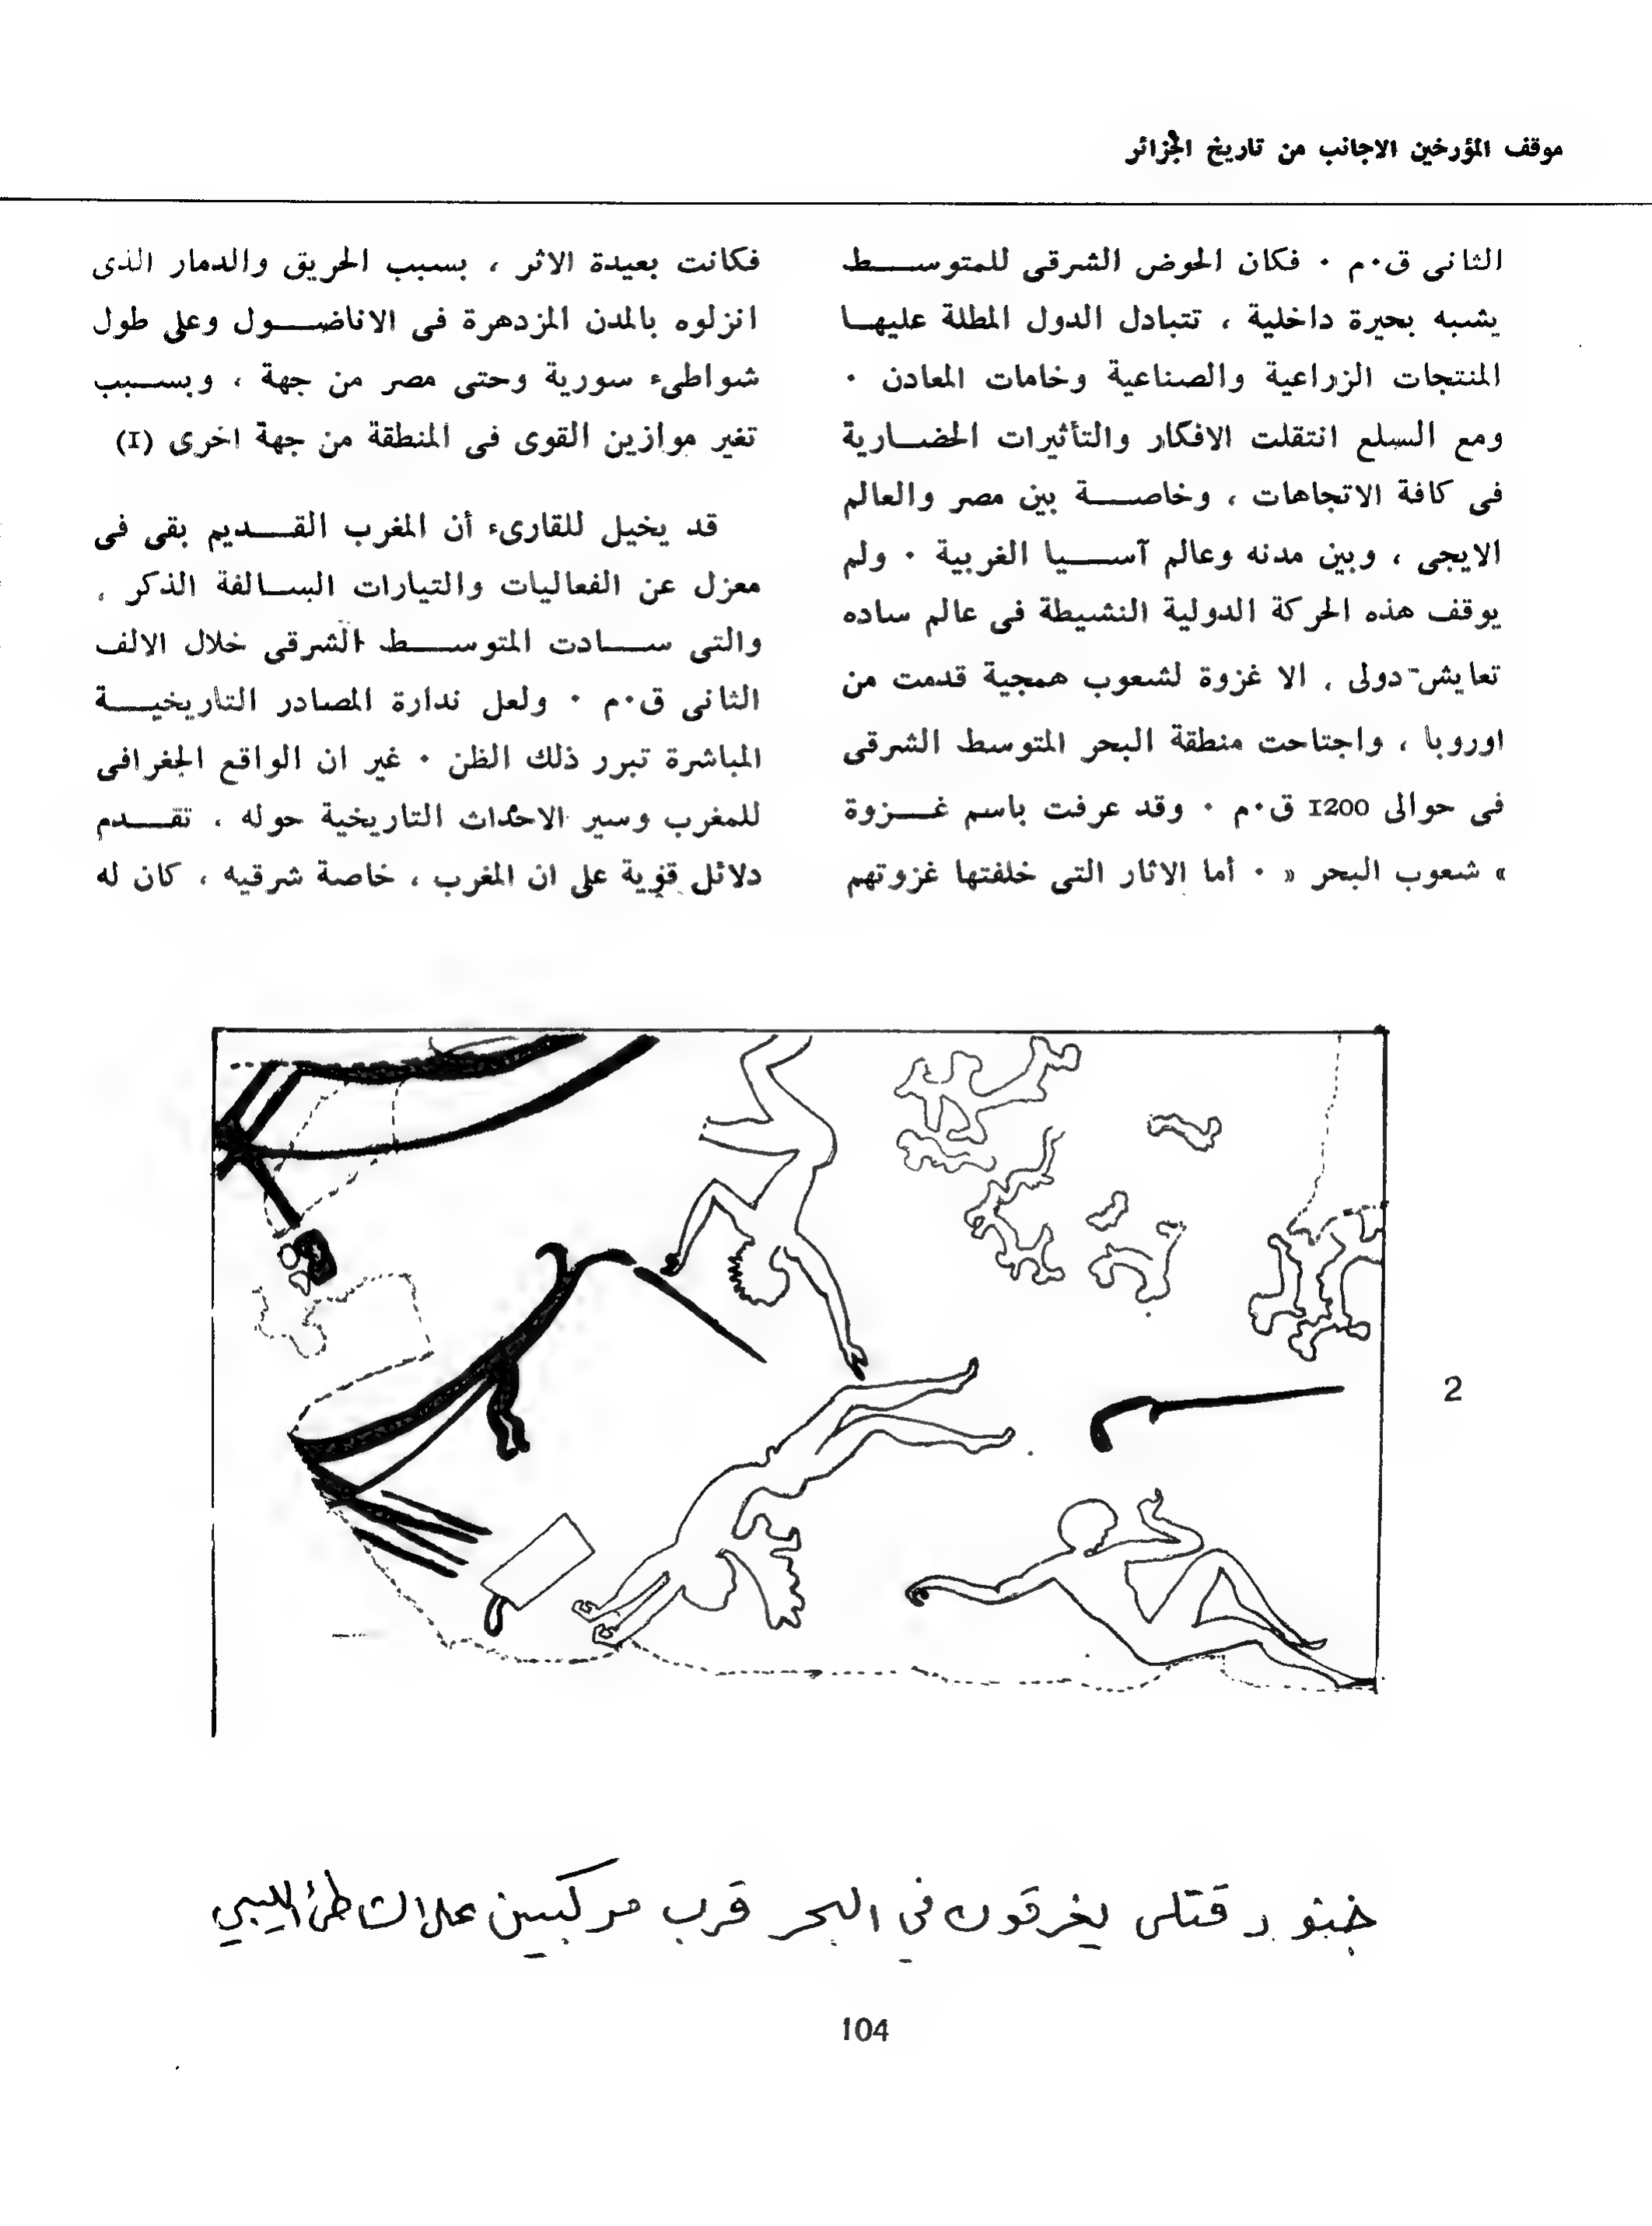 موقف المؤرخين الاجانب من تاريخ الجزائر
الثانى ق.م . فكان الحوض الشرقى للمتوسط
يشبه بحيرة داخلية ، تتبادل الدول المطلة عليها
المنتجات الزراعية والصناعية وخامات المعادن .
ومع السلع انتقلت الافكار والتأثيرات الحضارية
فى كافة الاتجاهات ، وخاصة بين مصر والعالم
الايجى ، وبين مدنه وعالم آسيا الغربية . ولم
يوقف هذه الحركة الدولية النشيطة فى عالم ساده
تعايش دولى ، الا غزوة لشعوب همجية قدمت من
اوروبا ، واجتاحت منطقة البحر المتوسط الشرقى
فى حوالى 1200 ق.م . وقد عرفت باسم غزوة
« شعوب البحر » . أما الاثار التى خلفتها غزوتهم
فكانت بعيدة الاثر ، بسبب الحريق والدمار الذى
انزلوه بالمدن المزدهرة فى الاناضول وعلى طول
شواطىء سورية وحتى مصر من جهة ، وبسبب
تغير موازين القوى فى المنطقة من جهة اخرى (I)
قد يخيل للقارىء أن المغرب القديم بقى فى
معزل عن الفعاليات والتيارات السالفة الذكر ،
والتى سادت المتوسط الشرقى خلال الالف
الثانى ق.م . ولعل ندارة المصادر التاريخية
المباشرة تبرر ذلك الظن . غير ان الواقع الجغرافى
للمغرب وسير الاحداث التاريخية حوله ، تقدم
دلائل قوية على ان المغرب ، خاصة شرقيه ، كان له
2
جنود قتلى يغرقون في البحر قرب مركبين على الشاطئ الليبي
104